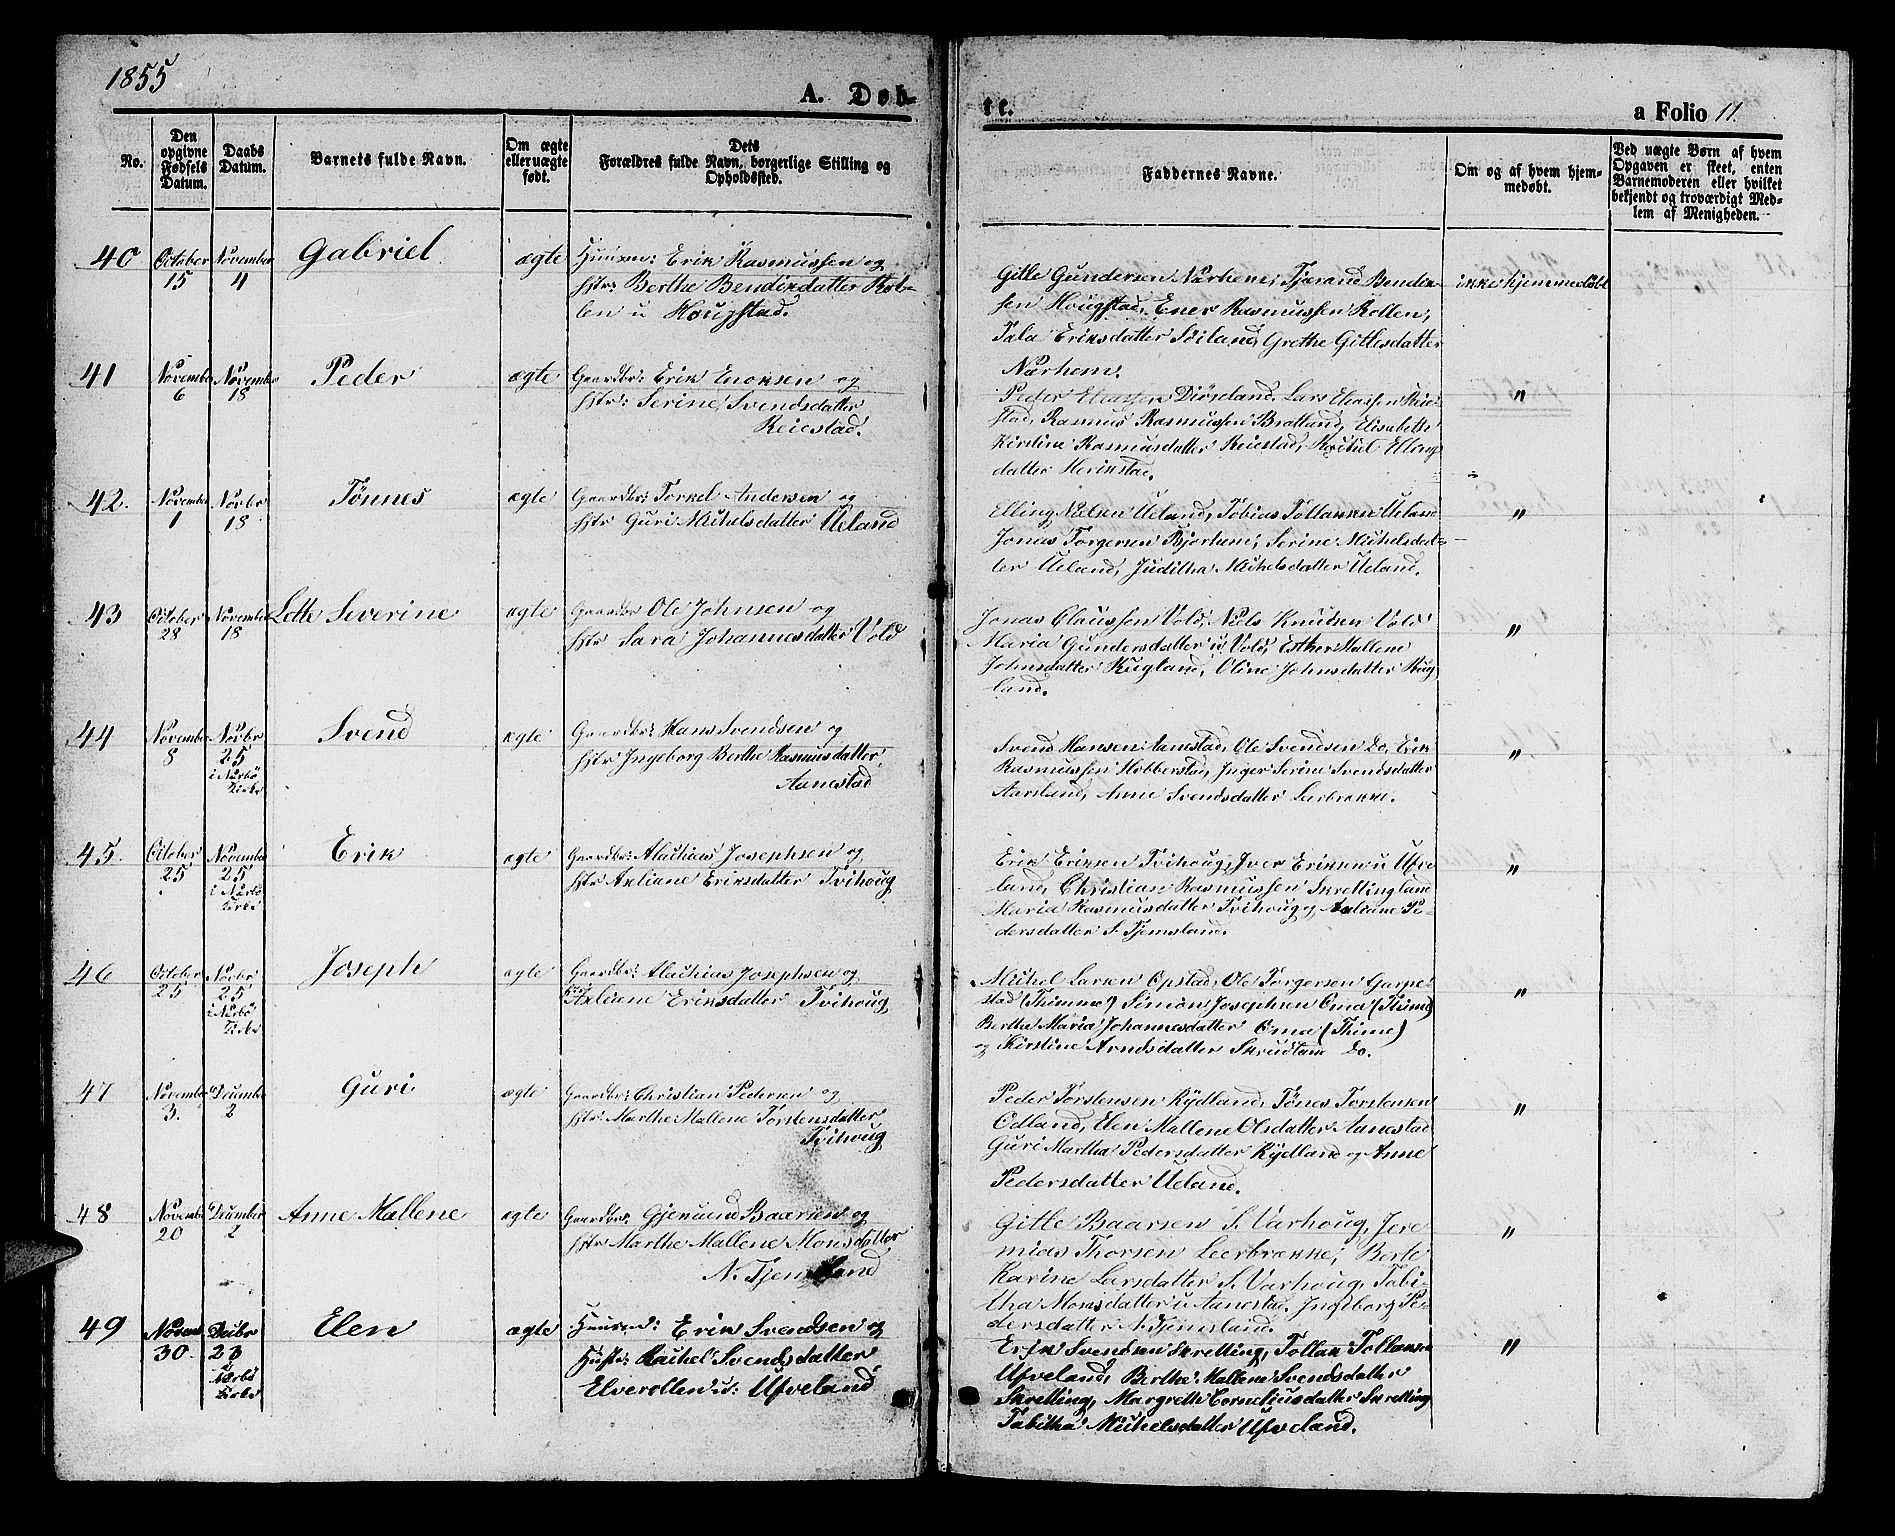 1855
A. Døb-
te.
a Folio 11.
No.
Den opgivne Fødsels Datum.
Daabs Datum.
Barnets fulde Navn.
Om ægte eller uægte født.
Dets Forældres fulde Navn, borgerlige Stilling og Opholdssted.
Faddernes Navne.
Om og af hvem hjemmedøbt.
Ved uægte Børn af hvem Opgaven er skeet, enten Barnemoderen eller hvilket bekjendt og troværdigt Medlem af Menigheden.
40 October 15 November 4 Gabriel ægte
Huusm: Erik Rasmussen og
hstr: Berthe Bendiksdatter Kol-
len u Hougstad.
Gitle Gundersen Nærhem, Tjerand Bendik-
sen Hougstad, Ener Rasmussen Kollen,
Tala Eriksdatter Söiland, Grethe Gitlesdatter
Nærhem.
ikke hjemmedøbt
41 November 6 November 18 Peder ægte
Gaardbr: Erik Enoksen og
hstr: Serine Svendsdatter
Reiestad.
Peder Eliassen Diösland, Lars Eliassen Reie-
stad, Rasmus Rasmussen Bratland, Elisabeth
Kirstine Rasmusdatter Reiestad, Elling
datter Herikstad.
"
42. November 1 Novbr 18 Tønnes ægte
Gaardbr: Torkel Andersen og
hstr Guri Michelsdatter Ueland
Elling Nielsen Ueland, Tobias Tollaksen Ueland
Jonas Torgersen Bjorhem, Serine Michelsdat-
ter Ueland, Juditha Michelsdatter Ueland.
"
43 October 28 November 18 Lette Severine ægte
Gaardbr Ole Johnsen og
hstr Sara Johannesdatter Vold
Jonas Claussen Vold, Niels Knudsen Vold
Maria Gundersdatter u Vold, Esther Mallene
Johnsdatter Kugland, Oline Johnsdatter Kug-
land.
"
44 November 8 Novbr 25 i Nærbö Kirke Svend ægte
Gaardbr: Hans Svendsen og
hstr Ingeborg Berthe Rasmusdatter
Aanestad
Svend Hansen Aanestad, Ole Svendsen Do, Erik
Rasmussen Hobberstad, Inger Serine Svendsdatter
Aarsland, Anne Svendsdatter Leerbrække.
"
45. October 25 November 25 i Nærbö Kirke Erik ægte
Gaardbr: Malthias Josephsen og
hstr Axliane Eriksdatter Tvihoug
Erik Eriksen Tvihoug, Iver Eriksen u Ufve-
land, Christian Rasmussen Skrettingland
Maria Rasmusdatter Tvihoug og Axliane Pe-
dersdatter S. Tjemsland.
"
46 October 25 Novbr 25 i Nærbö Kirke Joseph ægte
Gaardbr: Malthias Josephsen og
hstr Axliane Eriksdatter Tvihoug
Michel Larsen Opstad, Ole Torgersen Garpe-
stad (Thimme) Simon Josephsen Oma (Thime)
Berthe Maria Johannesdatter Oma (Thime)
og Kirstine Arndsdatter Do.
"
47 November 3. December 2 Guri ægte
Gaardbr: Christian Pedersen og
hstr: Marthe Mallene Torstensdatter
Tvihoug
Peder Torstensen Rydland, Tönes Torstensen
Odland, Elen Mallene Olsdatter Aanestad
Guri Martha Pedersdatter Rydland og Anne
Pedersdatter Ueland.
"
48 November 20 December 2 Anne Mallene ægte
Gaardbr. Gjermund Baarsen og
hstr Marthe Mallene Monsdatter
N. Tjemsland
Gitle Baarsen S. Varhoug, Jere-
mias Thorsen Leerbrække, Berte
Karine Larsdatter S. Varhoug, Tabi-
tha Monsdatter u Aanestad, Ingeborg Pe-
dersdatter N. Tjemsland.
"
49 Novemb 30. Decbr 23 Nærbö Kirke Elen ægte
Huusmd: Erik Svendsen og
Hustr: Rachel Svendsdatter
Elverollen u: Ufveland
Erik Svendsen Skretting, Tollak Tollaksen
Ufveland, Berthe Mallene Svendsdatter
Skretting, Margrethe Corneliusdatter Skretting
Tabitha Michelsdatter Ufveland.
"